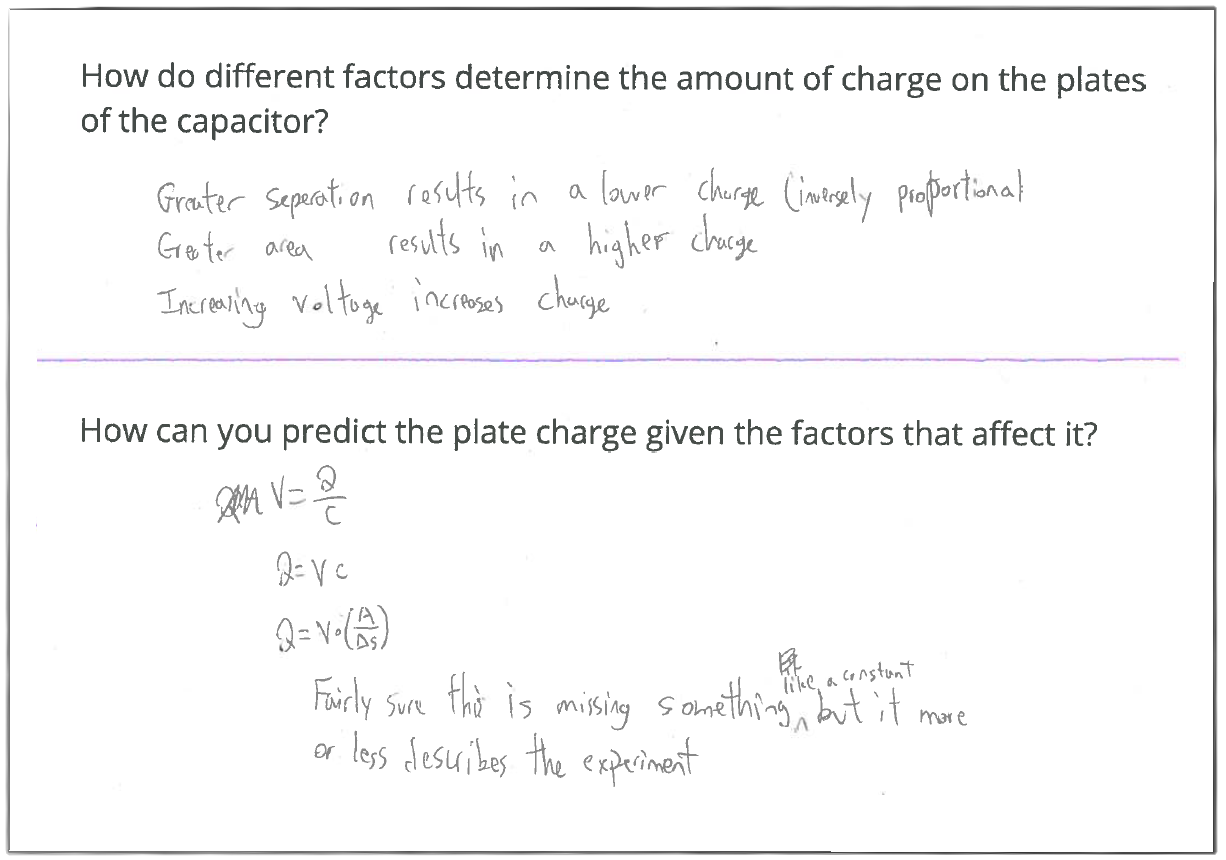 How do different factors determine the amount of charge on the plates
of the capacitor?
Greater seperation results in a lower charge (inversely proportional
Greater area results in a higher charge
Increasing voltage increases charge
How can you predict the plate charge given the factors that affect it?
V = Q/C
Q = V C
Q = V·(A/Δs)
Fairly sure this is missing something, like a constant but it more
or less describes the experiment